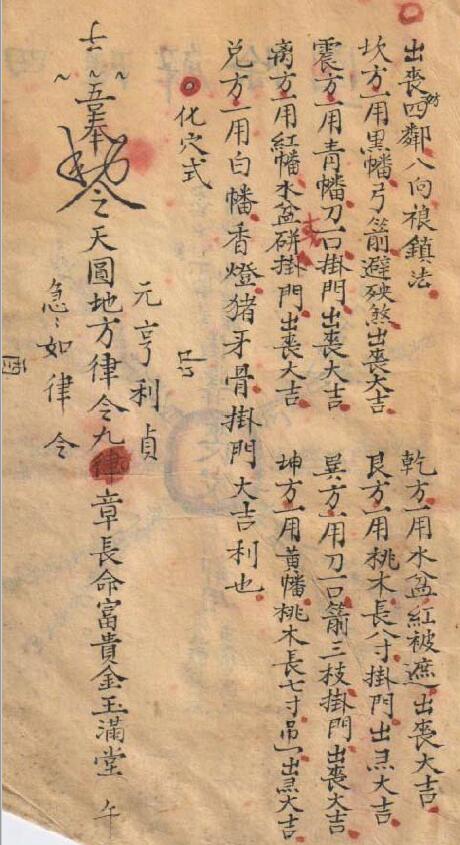 出喪四鄰八向禳鎮法
坎方一用黑幡弓箭避殃煞出喪大吉
震方一用青幡刀一口掛門出喪大吉
離方一用紅幡水盆餅掛門出喪大吉
兌方一用白幡香燈猪牙骨掛門大吉利也
乾方一用水盆紅被遮出喪大吉
艮方一用桃木長八寸掛門出喪大吉
巽方一用刀一口箭三枝掛門出喪大吉
坤方一用黄幡桃木長七寸吊出喪大吉
化穴式
元亨利貞
奉令天圓地方律令九章長命富貴金玉滿堂
急急如律令